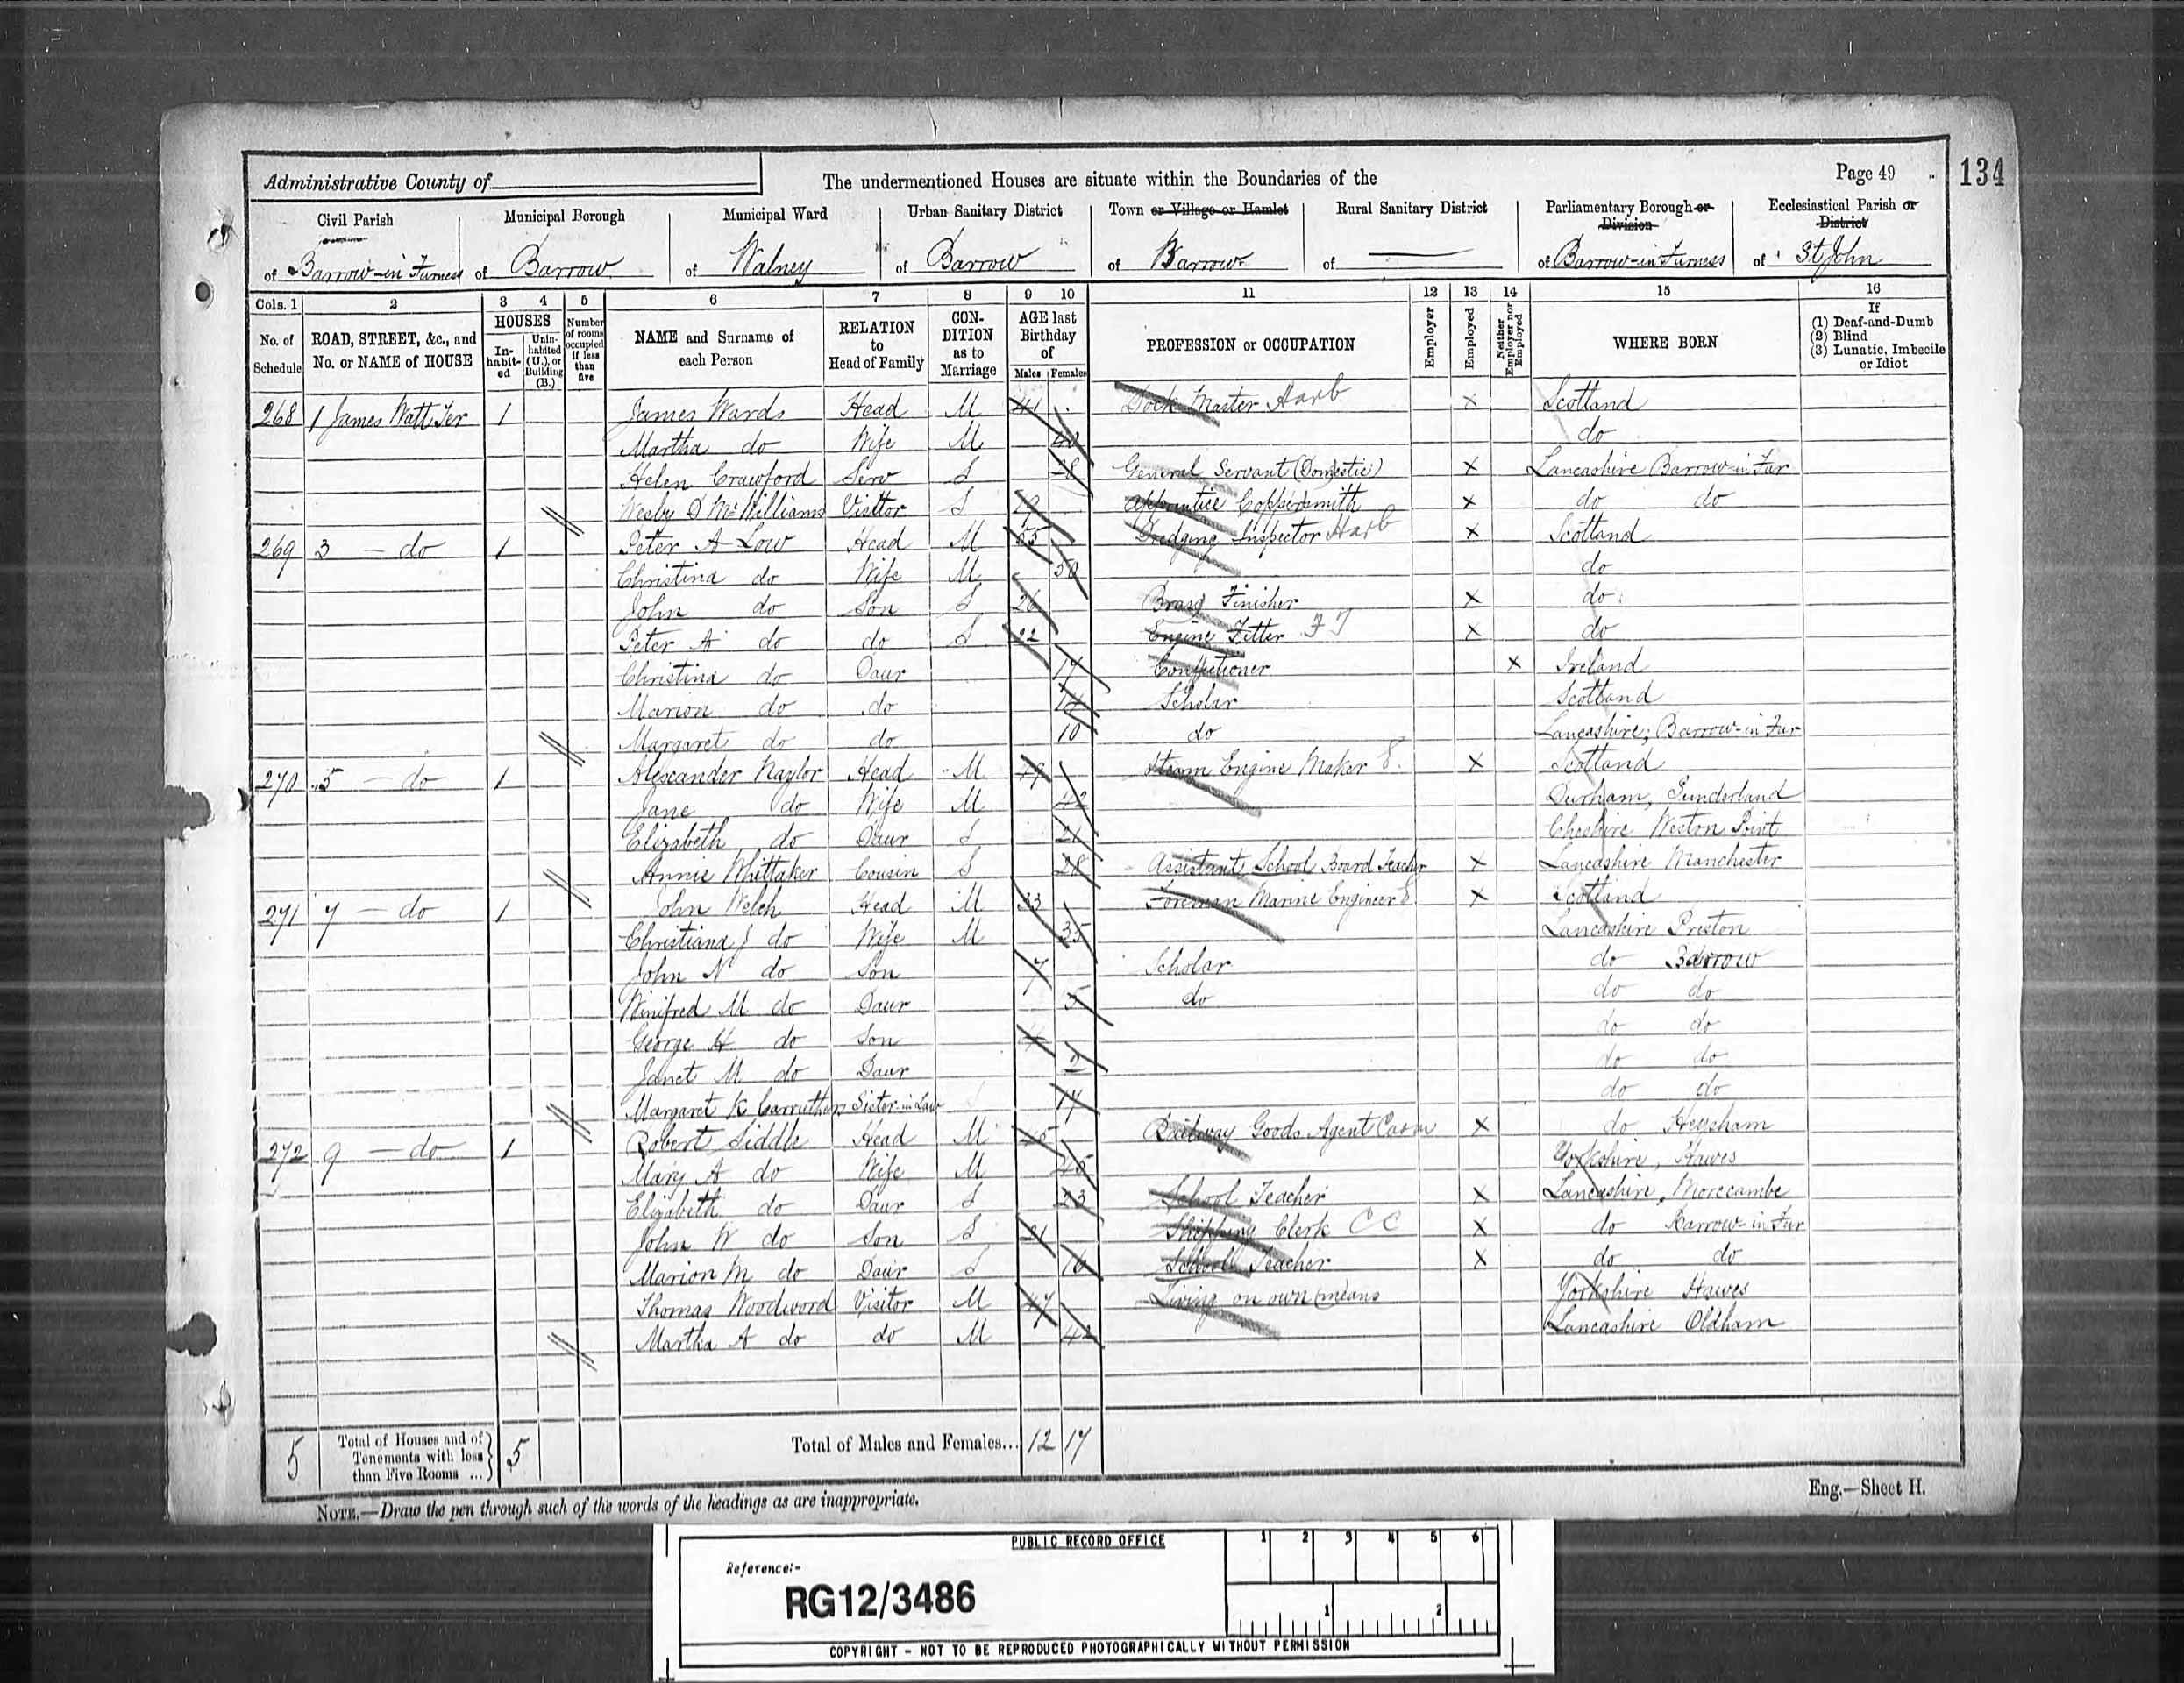 Administrative County of
The undermentioned Houses are situate within the Boundaries of the
Page 49
134
Civil Parish of Barrow-in-Furness
Municipal Borough of Barrow
Municipal Ward of Walney
Urban Sanitary District of Barrow
Town or Village or Hamlet of Barrow
Rural Sanitary District of
Parliamentary Borough or Division of Barrow-in-Furness
Ecclesiastical Parish or District of St John
Cols. 1 2 3 4 5 6 7 8 9 10 11 12 13 14 15 16
No. of Schedule
ROAD, STREET, &c., and No. or NAME of HOUSE
HOUSES
In-habit-ed
Unin-habited (U.), or Building (B.)
Number of rooms occupied if less than five
NAME and Surname of each Person
RELATION to Head of Family
CON-DITION as to Marriage
AGE last Birthday of
Males Females
PROFESSION or OCCUPATION
Employer
Employed
Neither Employer nor Employed
WHERE BORN
If (1) Deaf-and-Dumb (2) Blind (3) Lunatic, Imbecile or Idiot
268 1 James Watt Ter 1 James Wards Head M 41 Dock Master Harb X Scotland
Martha do Wife M 40 do
Helen Crawford Serv S 18 General Servant (Domestic) X Lancashire Barrow-in-Fur
D McWilliams Visitor S Apprentice Coppersmith X do do
269 3 — do 1 Peter A Low Head M 55 Dredging Inspector Harb X Scotland
Christina do Wife M 50 do
John do Son S 26 Brass Finisher X do
Peter A do do S 22 Engine Fitter F J X do
Christina do Daur 17 Confectioner X Ireland
Marion do do Scholar Scotland
Margaret do do 10 do Lancashire; Barrow-in-Fur
270 5 — do 1 Alexander Naylor Head M 49 Steam Engine Maker X Scotland
Jane do Wife M 42 Durham, Sunderland
Elizabeth do Daur S 21 Cheshire Weston Point
Annie Whittaker Cousin S 28 Assistant School Board Teacher X Lancashire Manchester
271 7 — do 1 John Welch Head M 33 Foreman Marine Engineer X Scotland
Christiana J do Wife M 35 Lancashire Preston
John N do Son 7 Scholar do Barrow
Winifred M do Daur 5 do do do
George H do Son 4 do do
Janet M do Daur 2 do do
Margaret K Carruthers Sister-in-Law 17 do do
272 9 — do 1 Robert Siddle Head M 45 Railway Goods Agent X do Heysham
Mary A do Wife M 45 Yorkshire, Hawes
Elizabeth do Daur S 23 School Teacher X Lancashire, Morecambe
John W do Son S 21 Shipping Clerk C C X do Barrow-in-Fur
Marion M do Daur S 16 School Teacher X do do
Thomas Woodword Visitor M 47 Living on own means Yorkshire Hawes
Martha A do do M 42 Lancashire Oldham
5 Total of Houses and of Tenements with less than Five Rooms ... 5
Total of Males and Females... 12 17
NOTE.—Draw the pen through such of the words of the headings as are inappropriate.
Eng.—Sheet H.
PUBLIC RECORD OFFICE
1 2 3 4 5 6
Reference:-
RG12/3486
1 2
COPYRIGHT - NOT TO BE REPRODUCED PHOTOGRAPHICALLY WITHOUT PERMISSION